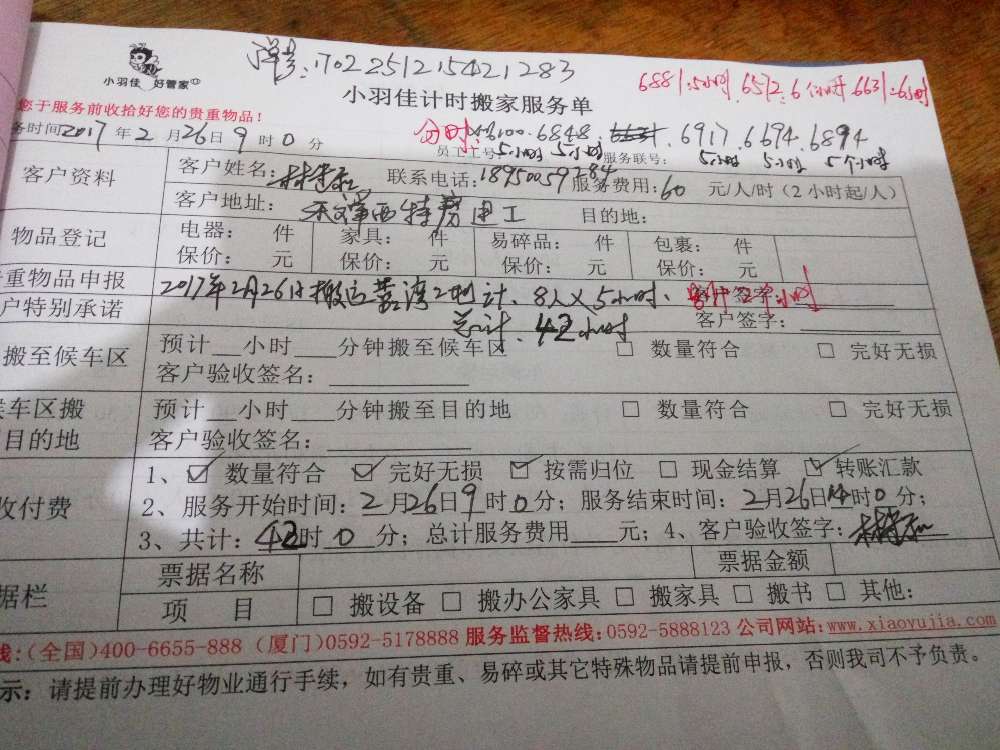 单号:1702251215421283
6881:5小时.6572:6个小时 6631:6小时
小羽佳 好管家
小羽佳计时搬家服务单
您于服务前收拾好您的贵重物品!
分时: 6100.6848. 6917.6694.6894
务时间2017年2月26日9时0分
员工工号 5小时 5小时 服务联号: 5小时 5小时 5个小时
客户资料 客户姓名: 联系电话:18950059284 服务费用:60元/人/时(2小时起/人)
客户地址: 目的地:
物品登记 电器: 件 家具: 件 易碎品: 件 包裹: 件
保价: 元 保价: 元 保价: 元 保价: 元
贵重物品申报 2017年2月26日搬运 8人×5小时、 2个小时
户特别承诺 总计:42小时 客户签字:
搬至候车区 预计 小时 分钟搬至候车区 □ 数量符合 □ 完好无损
客户验收签名:
候车区搬 预计 小时 分钟搬至目的地 □ 数量符合 □ 完好无损
目的地 客户验收签名:
收付费 1、☑ 数量符合 ☑ 完好无损 ☑ 按需归位 □ 现金结算 ☑ 转账汇款
2、服务开始时间:2月26日9时0分;服务结束时间:2月26日14时0分;
3、共计:42时0分;总计服务费用 元;4、客户验收签字:
据栏 票据名称 票据金额
项 目 □ 搬设备 □ 搬办公家具 □ 搬家具 □ 搬书 □ 其他:
线:(全国)400-6655-888 (厦门)0592-5178888 服务监督热线:0592-5888123 公司网站:www.xiaoyujia.com
示:请提前办理好物业通行手续,如有贵重、易碎或其它特殊物品请提前申报,否则我司不予负责。